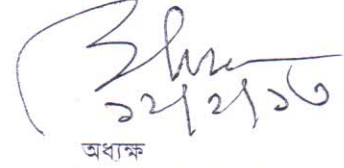 ১২/২/১৩
অধ্যক্ষ